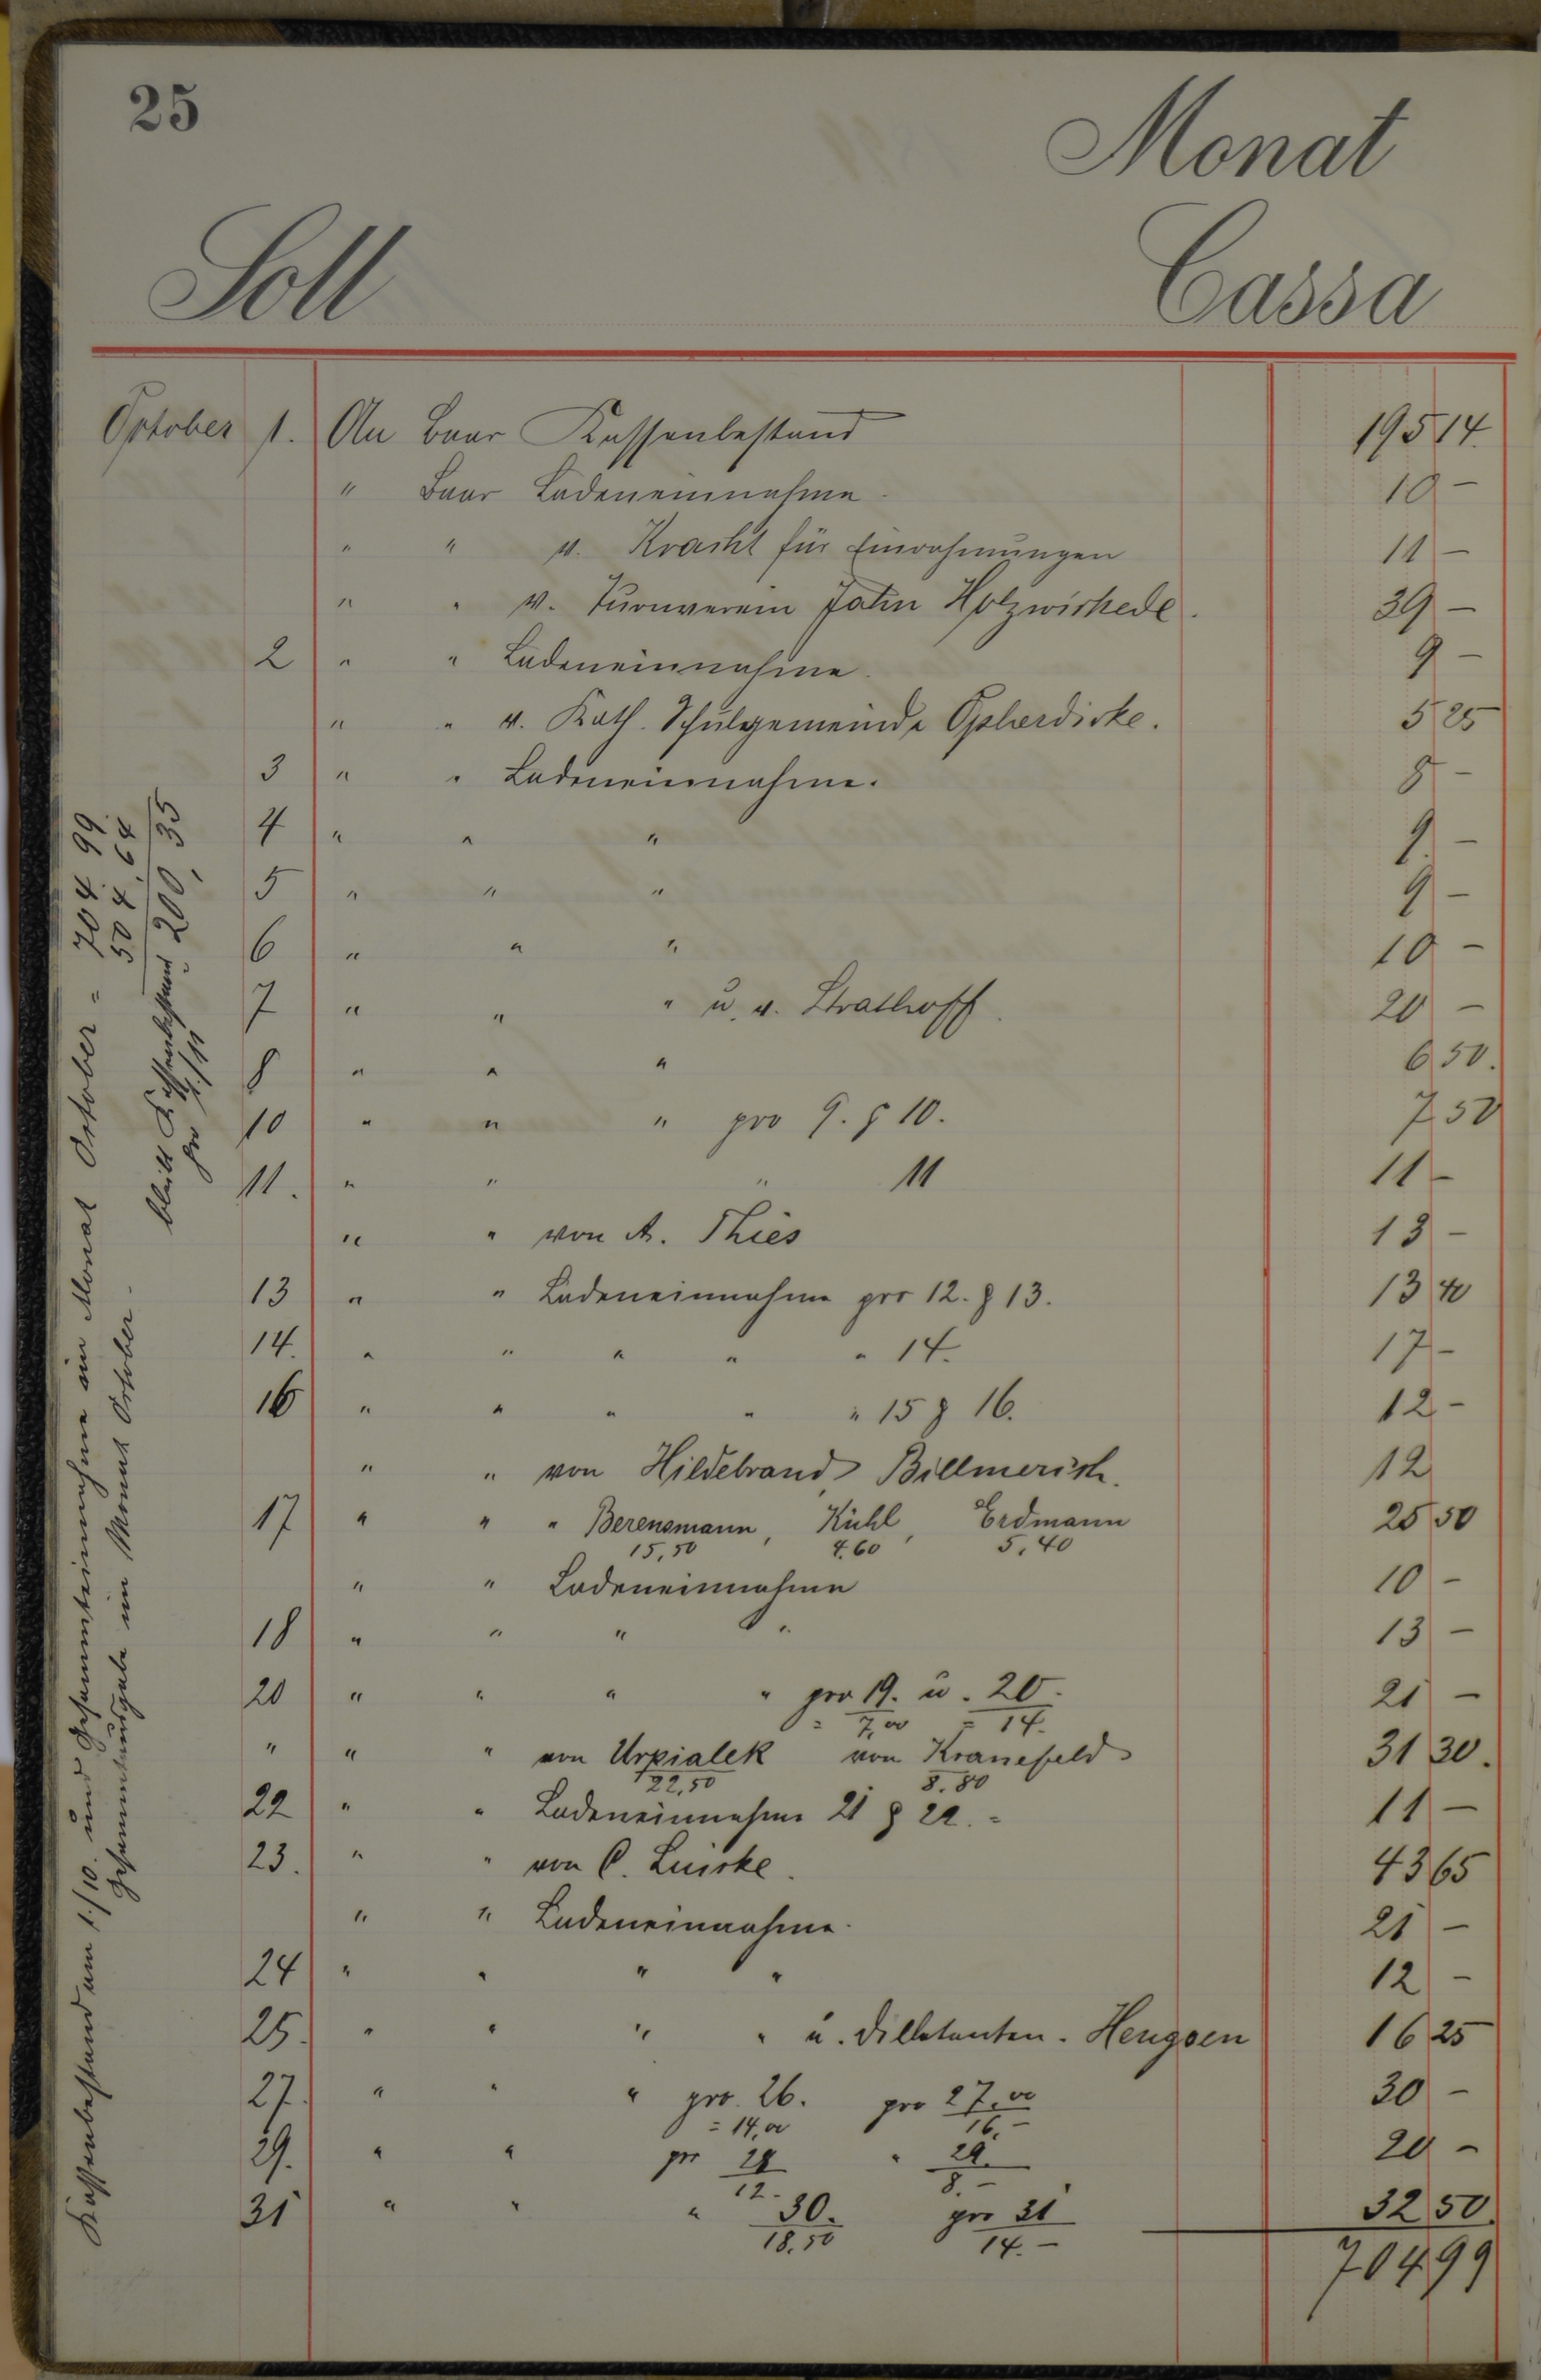 25
Monat
Soll
Cassa
October 1. An Baar Kassenbestand 195 14.
" Baar Ladeneinnahme. 10 -
" " v. Kracht für Einrahmungen 11 -
" " v. Turnverein Jahn Holzwickede. 39 -
2 " " Ladeneinnahme. 9 -
" " v. Kath. Schulgemeinde Opherdicke. 5 25
3 " " Ladeneinnahme. 8 -
4 " " " 9 -
5 " " " 9 -
6 " " " 10 -
7 " " " u. v. Strathoff. 20 -
8 " " " 6 50.
10 " " " pro 9. & 10. 7 50
11. " " " 11 11 -
" " von A. Thies 13 -
13 " " Ladeneinnahme pro 12. & 13. 13 40
14. " " " " " 14. 17 -
16 " " " " " 15 & 16. 12 -
" " von Hildebrand, Billmerich. 12
17 " " " Berensmann, Kühl, Erdmann 25 50
15,50 4.60 5,40
" " Ladeneinnahme 10 -
18 " " " " 13 -
20 " " " " pro 19. u. 20. 21 -
= 7,00 = 14.
" " " von Urpialek von Kranefeld 31 30.
22,50 8.80
22 " " Ladeneinnahme 21 & 22. = 11 -
23. " " von C. Luicke. 43 65
" " Ladeneinnahme. 21 -
24 " " " " 12 -
25. " " " " u. Dilletanten. Hengsen 16 25
27. " " " pro 26. pro 27.00 30 -
= 14,00 16.-
29. " " pro 28 " 29. 20 -
12.- 8.-
31 " " " 30. pro 31 32 50.
18.50 14.-
704 99
Kassenbestand am 1./10. und Gesammteinnahme im Monat October = 704 99.
Gesammtausgabe im Monat October. 504,64
bleibt Kassenbestand = 200,35
pro 1./11